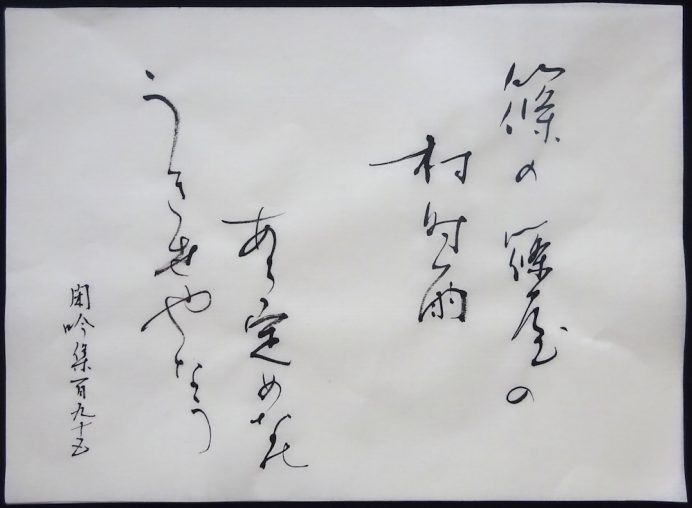 篠の篠屋の
村時雨
あら定めなの
うき世やなう
閑吟集百九十五